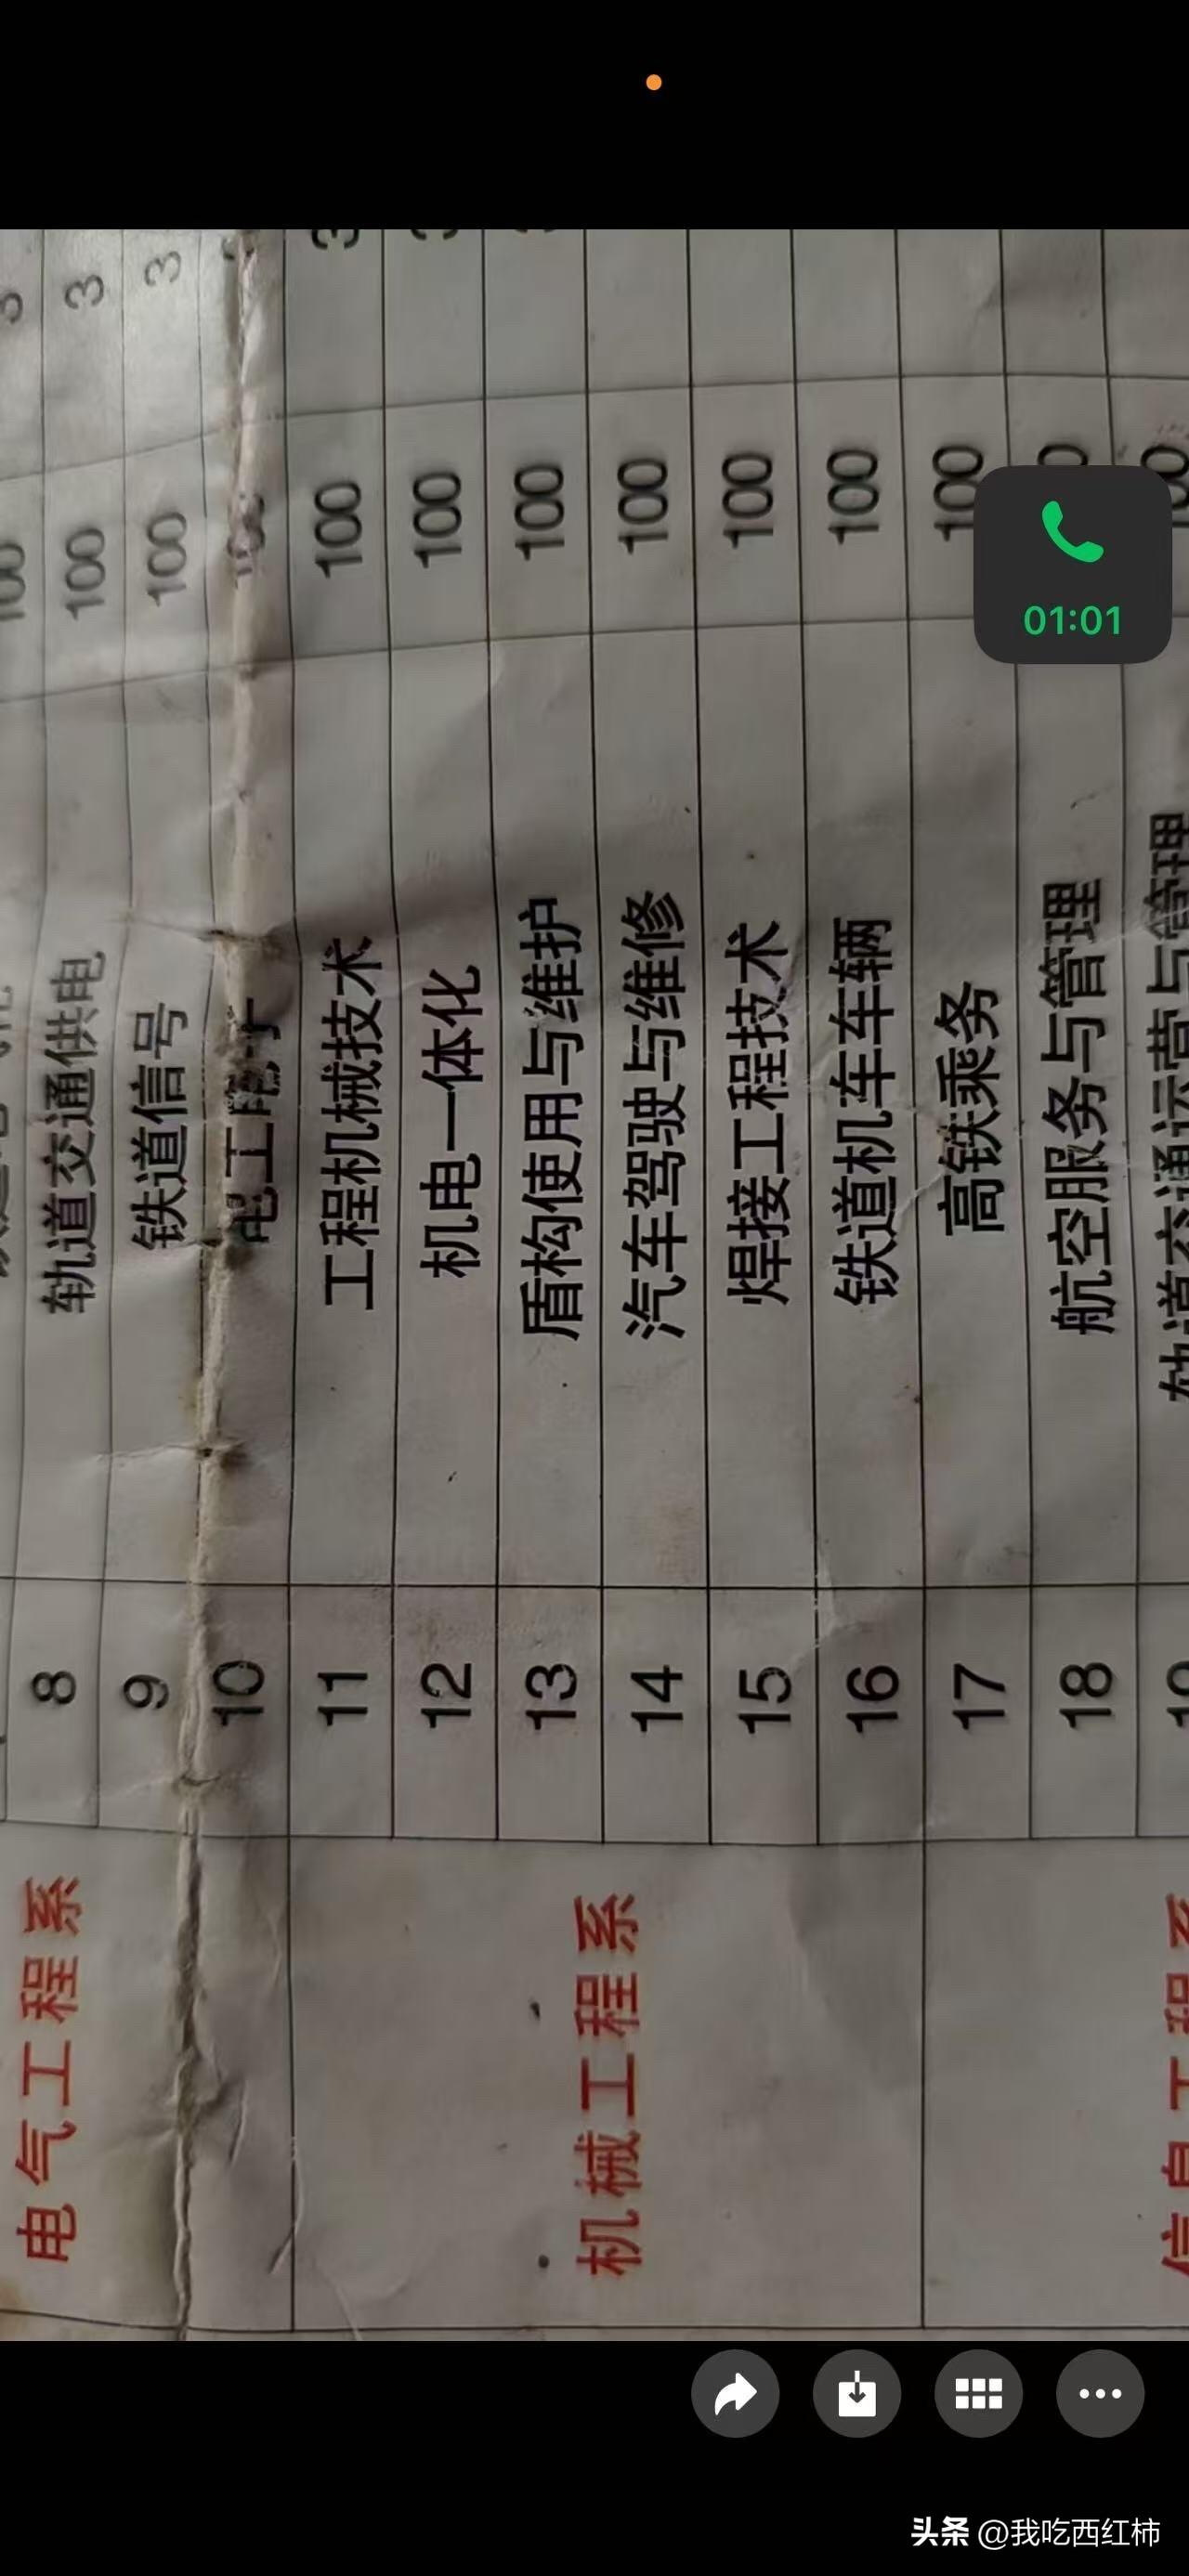 电气工程系
8 轨道交通供电 100 3
9 铁道信号 100 3
10 电工电子
机械工程系
11 工程机械技术 100 3
12 机电一体化 100
13 盾构使用与维护 100
14 汽车驾驶与维修 100
15 焊接工程技术 100
16 铁道机车车辆 100
17 高铁乘务 100
18 航空服务与管理
轨道交通运营与管理
01:01
头条 @我吃西红柿